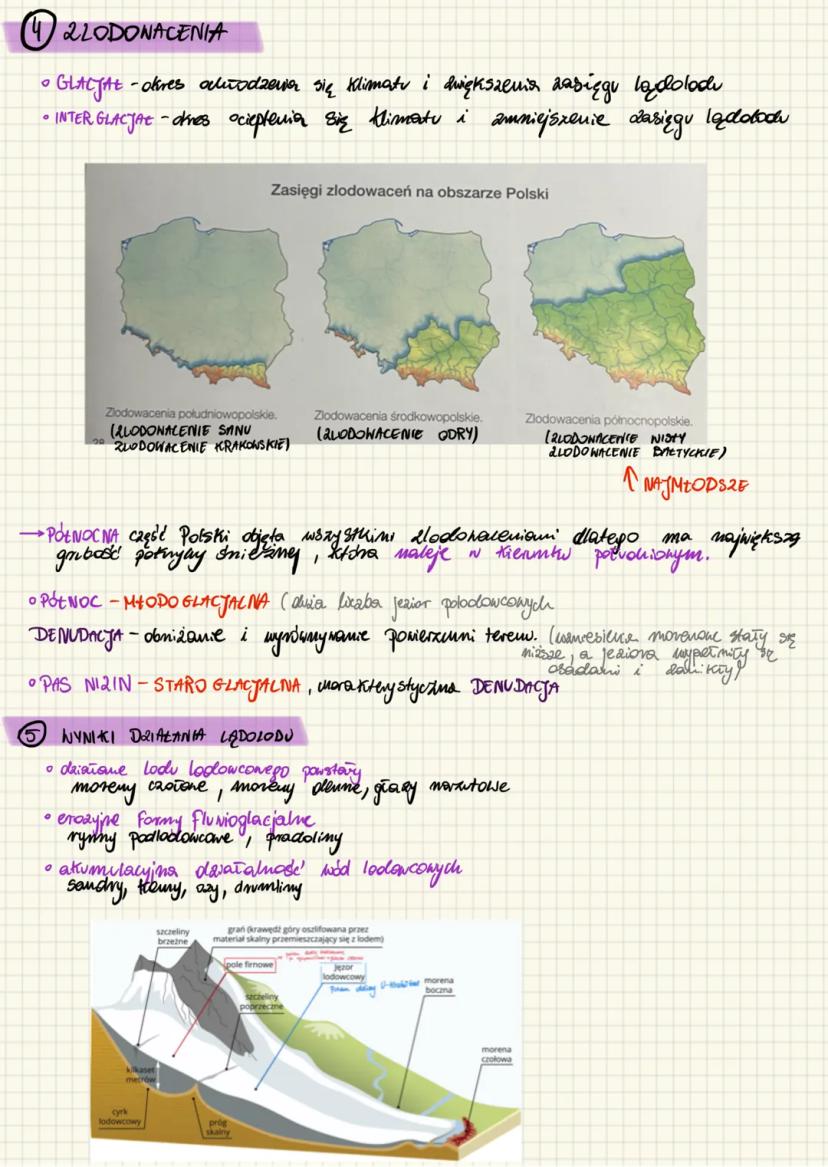 4 ZLODOWACENIA
• GLACJAŁ - okres ochłodzenia się klimatu i zwiększenia zasięgu lądolodu
• INTERGLACJAŁ - okres ocieplenia się klimatu i zmniejszenie zasięgu lądolodu
Zasięgi zlodowaceń na obszarze Polski
Zlodowacenia południowopolskie. Zlodowacenia środkowopolskie. Zlodowacenia północnopolskie.
(ZLODOWACENIE SANU (ZLODOWACENIE ODRY) (ZLODOWACENIE WISŁY
ZLODOWACENIE KRAKOWSKIE) ZLODOWACENIE BAŁTYCKIE)
↑ NAJMŁODSZE
→ PÓŁNOCNA część Polski objęta wszystkimi zlodowaceniami dlatego ma największą
grubość pokrywy śnieżnej, która maleje w kierunku południowym.
• PÓŁNOC - MŁODOGLACJALNA (duża liczba jezior polodowcowych
DENUDACJA - obniżanie i wyrównywanie powierzchni terenu. (wzniesienia morenowe stały się
niższe, a jeziora wypełniły się
osadami i zanikły)
• PAS NIZIN - STAROGLACJALNA, charakterystyczna DENUDACJA
5 WYNIKI DZIAŁANIA LĄDOLODU
• działanie lodu lodowcowego powstały
moreny czołowe, moreny denne, głazy narzutowe
• erozyjne formy fluwioglacjalne
rynny podlodowcowe, pradoliny
• akumulacyjna działalność wód lodowcowych
sandry, kemy, ozy, drumliny
szczeliny
brzeżne
grań (krawędź góry oszlifowana przez
materiał skalny przemieszczający się z lodem)
pole firnowe
jęzor
lodowcowy
szczeliny
poprzeczne
morena
boczna
morena
czołowa
kilkaset
metrów
cyrk
lodowcowy
próg
skalny